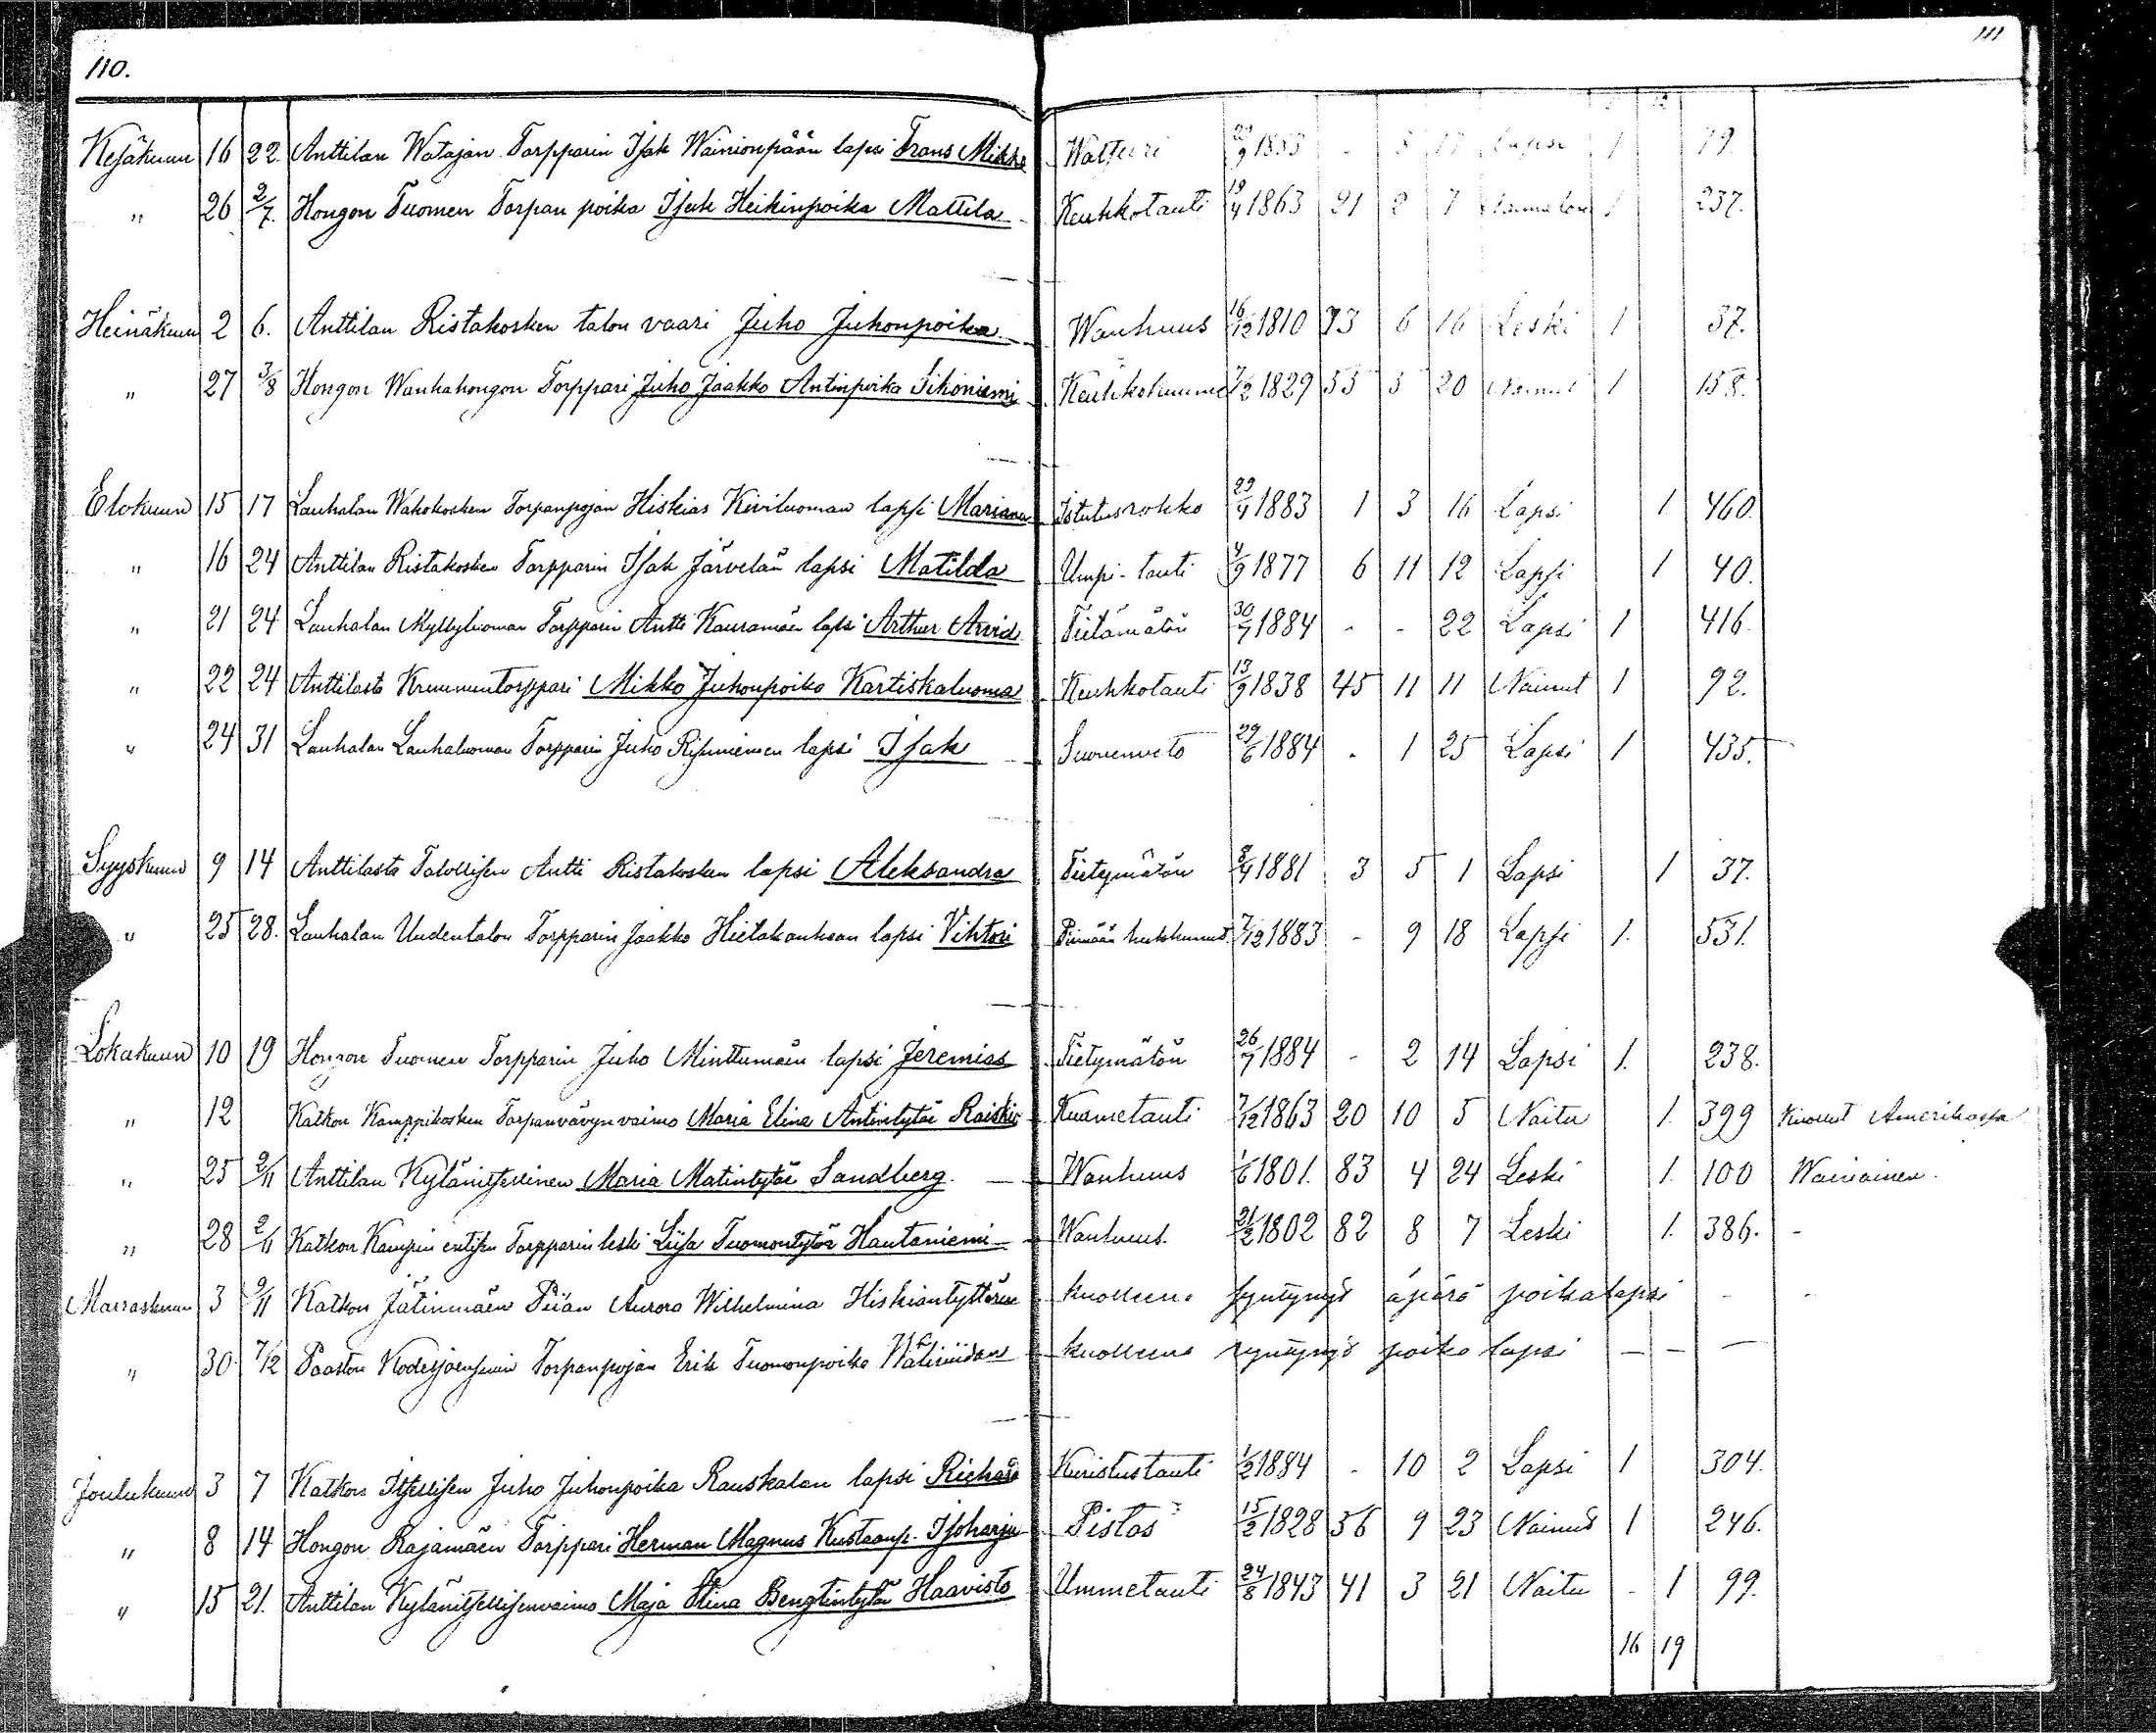 110.
111
Kesäkuun 16 22. Anttilan Watajan Torpparin Isak Wainionpään lapsi Frans Mikko 29/9 1883 - 8 lapsi 1 79.
" 26 2/7. Hongon Tuomen Torpan poika Isak Heikinpoika Mattila Keuhkotauti 19/4 1863 21 2 7 Naimaton 1 237.
Heinäkuun 2 6. Anttilan Ristakosken talon vaari Juho Juhonpoika Wanhuus 16/12 1810 73 6 16 Leski 1 37.
" 27 3/8 Hongon Wanhahongon Torppari Juho Jaakko Antinpoika Sikoniemi Keuhkokuume 7/2 1829 55 5 20 Nainut 1 158.
Elokuun 15 17 Lauhalan Wahokosken Torpanpojan Hiskias Kiviluoman lapsi Mariana Istutusrokko 29/4 1883 1 3 16 Lapsi 1 460.
" 16 24 Anttilan Ristakosken Torpparin Isak Järvelän lapsi Matilda Umpi-tauti 4/9 1877 6 11 12 Lapsi 1 40.
" 21 24 Lauhalan Myllyluoman Torpparin Antti Kauramäen lapsi Arthur Arvid Tietämätön 30/7 1884 - - 22 Lapsi 1 416.
" 22 24 Anttilasta Kruununtorppari Mikko Juhonpoika Kartiskaluoma Keuhkotauti 13/9 1838 45 11 11 Nainut 1 92.
" 24 31 Lauhalan Lauhaluoman Torpparin Juho Risuniemen lapsi Isak Suonenveto 29/6 1884 - 1 25 Lapsi 1 435.
Syyskuun 9 14 Anttilasta Talollisen Antti Ristakosken lapsi Aleksandra Tietymätön 8/4 1881 3 5 1 Lapsi 1 37.
" 25 28. Lauhalan Uudentalon Torpparin Jaakko Hietakankaan lapsi Vihtori Piimään hukkunut 7/12 1883 - 9 18 Lapsi 1. 531.
Lokakuun 10 19 Hongon Tuomen Torpparin Juho Minttumäen lapsi Jeremias Tietymätön 26/7 1884 - 2 14 Lapsi 1. 238.
" 12 Katkon Kamppikosken Torpanvävyn vaimo Maria Elina Antintytär Raiskio Kuumetauti 7/12 1863 20 10 5 Naitu 1. 399 Kuollut Amerikassa
" 25 2/11 Anttilan Kylänitsellinen Maria Matintytär Sandberg. Wanhuus 1/6 1801. 83 4 24 Leski 1. 100 Waivainen.
" 28 2/11 Katkon Kampin entisen Torpparin leski Liisa Tuomontytär Hautaniemi Wanhuus. 21/2 1802 82 8 7 Leski 1. 386. -
Marraskuun 3 9/11 Katkon Jätinmäen Piian Aurora Wilhelmina Hiskiantyttären kuolleena syntynyt äpärä poikalapsi - -
" 30. 7/12 Paaston Torpanpojan Erik Tuomonpoika kuolleena syntynyt poika lapsi - - -
Joulukuun 3 7 Katkon Itsellisen Juho Juhonpoika Rauskalan lapsi Richard Kuristustauti 1/2 1884 - 10 2 Lapsi 1 304.
" 8 14 Hongon Rajamäen Torppari Herman Magnus Kustaanp. Isoharju Pistos 15/2 1828 56 9 23 Nainut 1 246.
" 15 21. Anttilan Kylänitsellisenvaimo Maja Stina Bengtintytär Haavisto Ummetauti 24/8 1843 41 3 21 Naitu - 1 99.
16 19